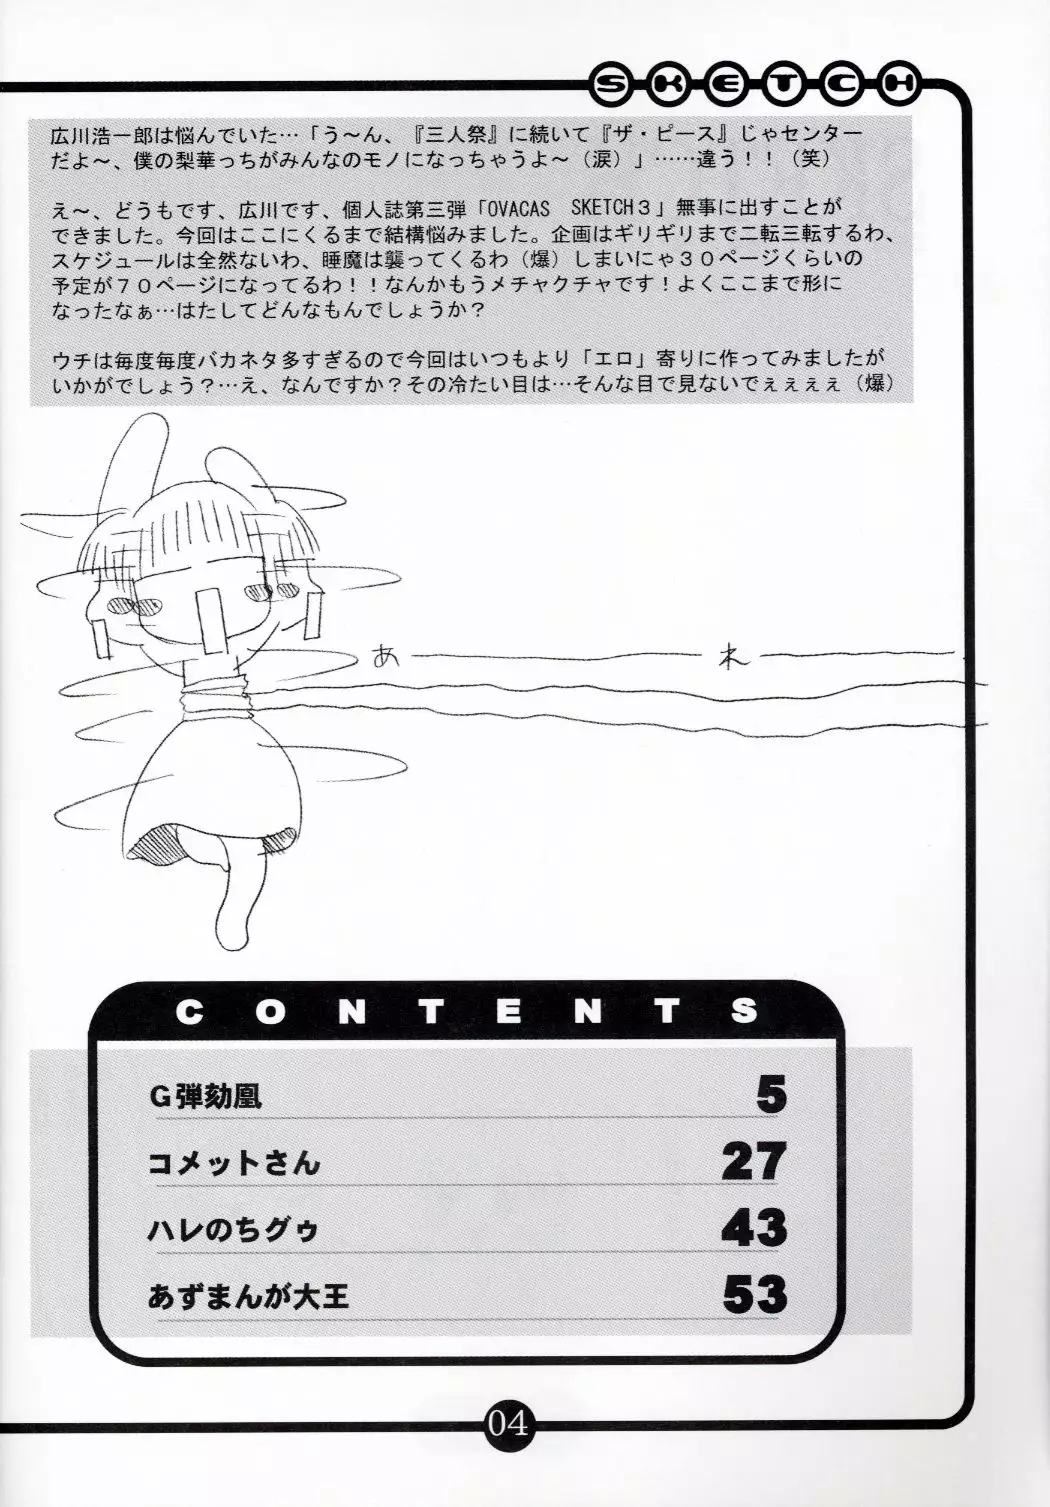 SKETCH
広川浩一郎は悩んでいた…「う～ん、『三人祭』に続いて『ザ・ピース』じゃセンター
だよ～、僕の梨華っちがみんなのモノになっちゃうよ～（涙）」……違う！！（笑）
え～、どうもです、広川です、個人誌第三弾「OVACAS　SKETCH３」無事に出すことが
できました。今回はここにくるまで結構悩みました。企画はギリギリまで二転三転するわ、
スケジュールは全然ないわ、睡魔は襲ってくるわ（爆）しまいにゃ３０ページくらいの
予定が７０ページになってるわ！！なんかもうメチャクチャです！よくここまで形に
なったなぁ…はたしてどんなもんでしょうか？
ウチは毎度毎度バカネタ多すぎるので今回はいつもより「エロ」寄りに作ってみましたが
いかがでしょう？…え、なんですか？その冷たい目は…そんな目で見ないでぇぇぇぇ（爆）
あ――れ――
CONTENTS
Ｇ弾劾凰 5
コメットさん 27
ハレのちグゥ 43
あずまんが大王 53
04